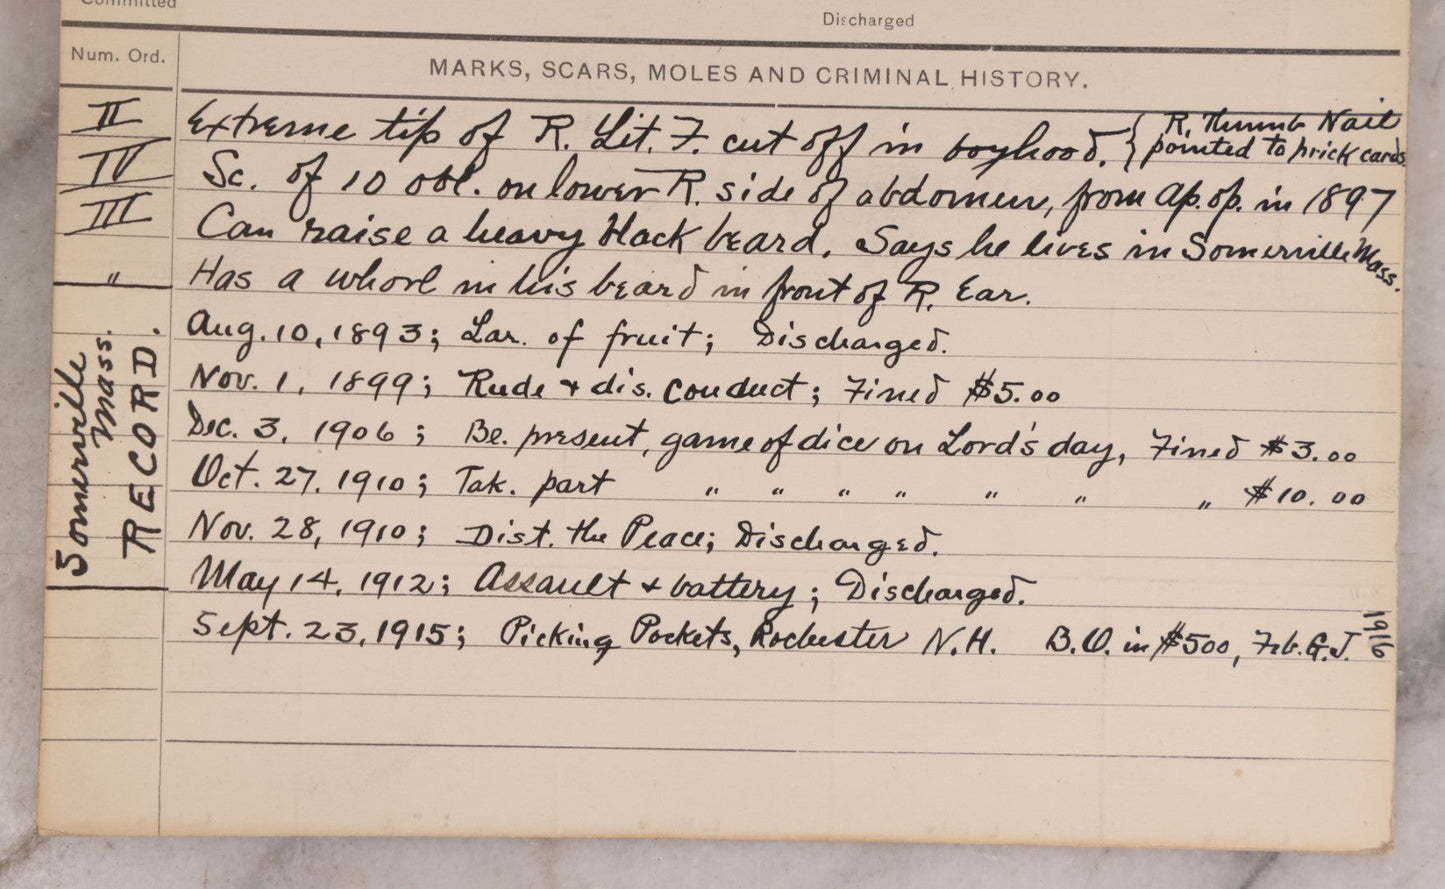 Committed
Discharged
Num. Ord.
MARKS, SCARS, MOLES AND CRIMINAL HISTORY.
II Extreme tip of R. Lit. F. cut off in boyhood. { R. Thumb Nail
pointed to prick cards
IV Sc. of 10 obl. on lower R. side of abdomen, from ap. op. in 1897
III Can raise a heavy black beard. Says he lives in Somerville Mass.
" Has a whorl in his beard in front of R. Ear.
Somerville
Mass.
RECORD.
Aug. 10, 1893; Lar. of fruit; Discharged.
Nov. 1, 1899; Rude + dis. conduct; Fined $5.00
Dec. 3, 1906; Be. present, game of dice on Lord's day, Fined $3.00
Oct. 27, 1910; Tak. part " " " " " " " $10.00
Nov. 28, 1910; Dist. the Peace; Discharged.
May 14, 1912; Assault + battery; Discharged.
Sept. 23, 1915; Picking Pockets, Rochester N.H. B.O. in $500, Feb. G.J. 1916